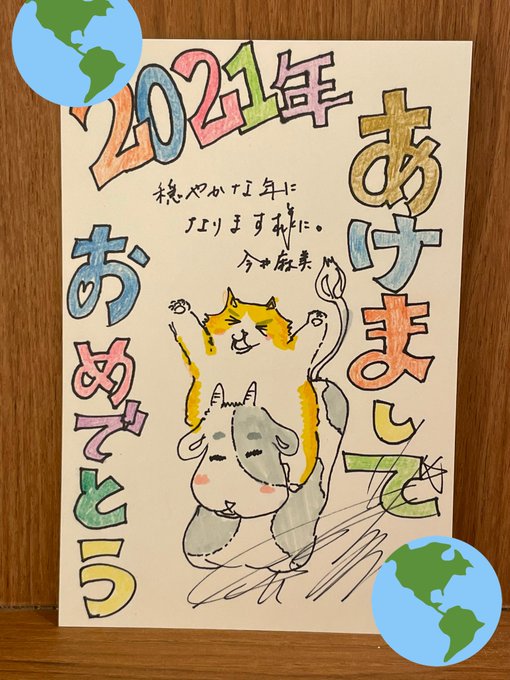 2021年
あけまして
おめでとう
穏やかな年に
なります様に。
今井麻美